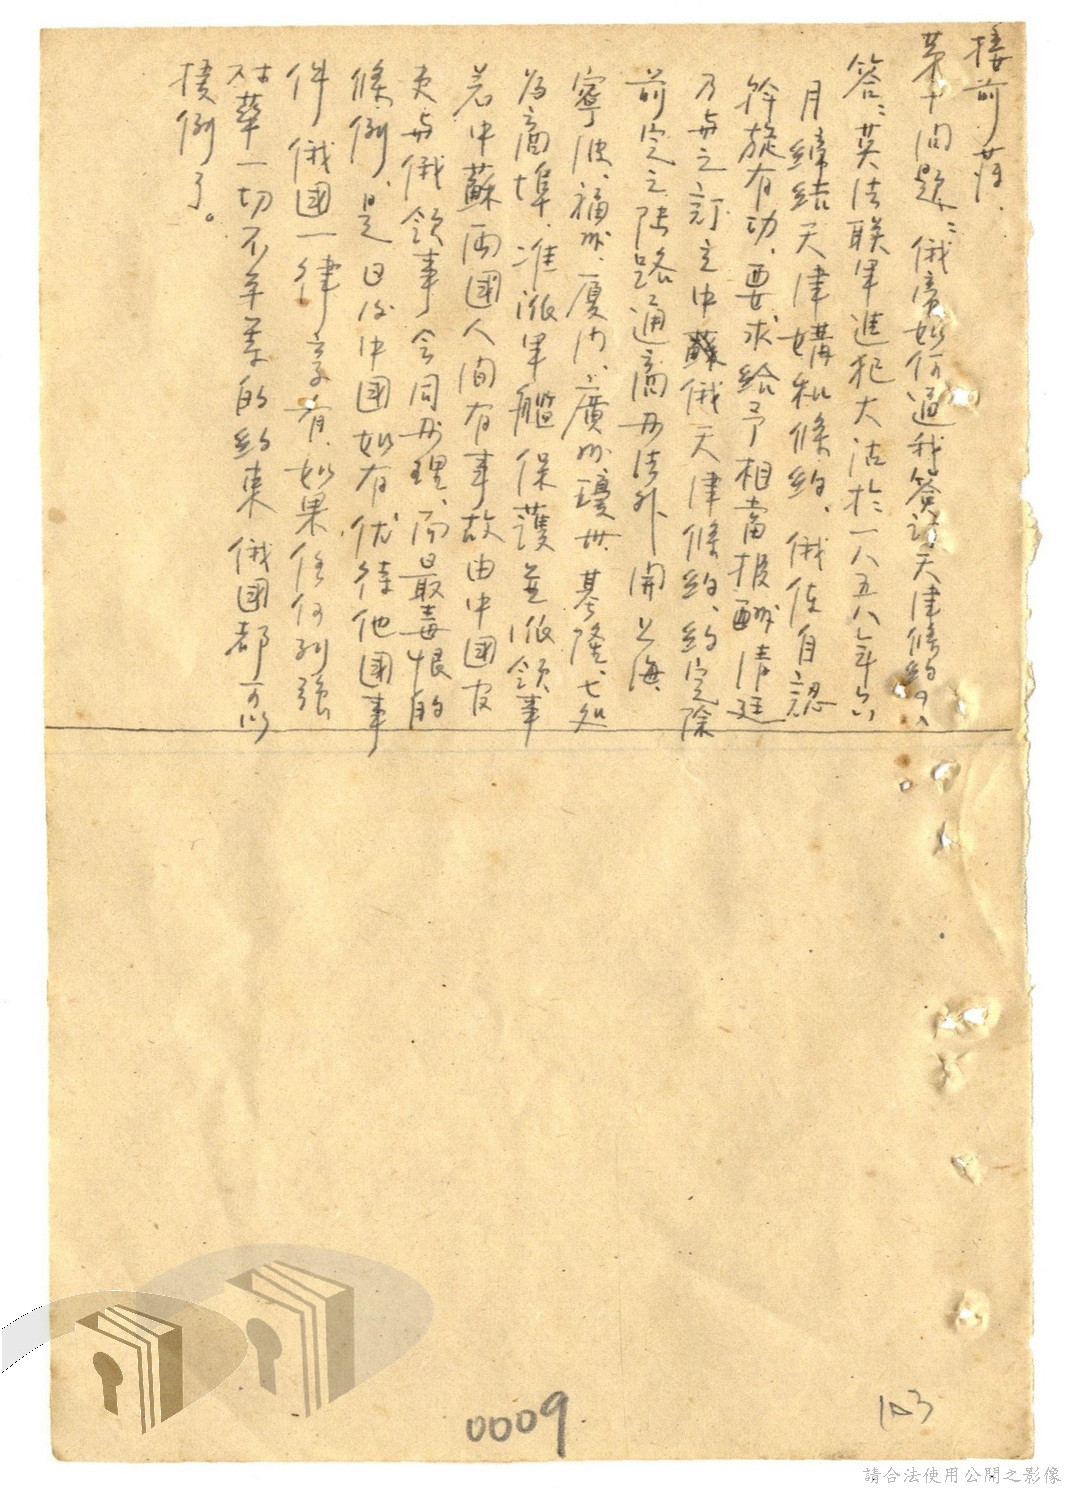 接前节.
第十问题:俄帝如何逼我签訂天津條約
答:英法联軍進犯大沽於一八五八年六
月締結天津媾和條約、俄使自認
斡旋有功、要求給予相當报酬清廷
乃与之訂立中俄天津條約、約定除
前定之陸路通商办法外開上海、
寧波、福州、厦门、廣州瓊州、基隆、七処
為商埠、准派軍艦保護並派領事
若中蘇両國人间有事故由中國官
吏与俄領事会同办理、而最毒恨的
條例、是日後中國如有优待他國事
件俄國一律享有、如果任何列強
对華一切不平等的約束俄國都可以
援例了。
0009
103
請合法使用公開之影像